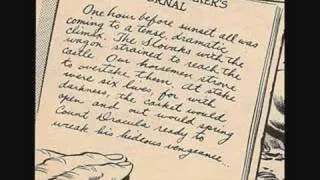 JOURNAL
One hour before sunset all was
coming to a tense, dramatic
climax. The Slovaks with the
wagon strained to reach the
castle. Our horsemen strove
to overtake them. At stake
were six lives, for with
darkness, the casket would
open and out would spring
Count Dracula ready to
wreak his hideous vengeance...